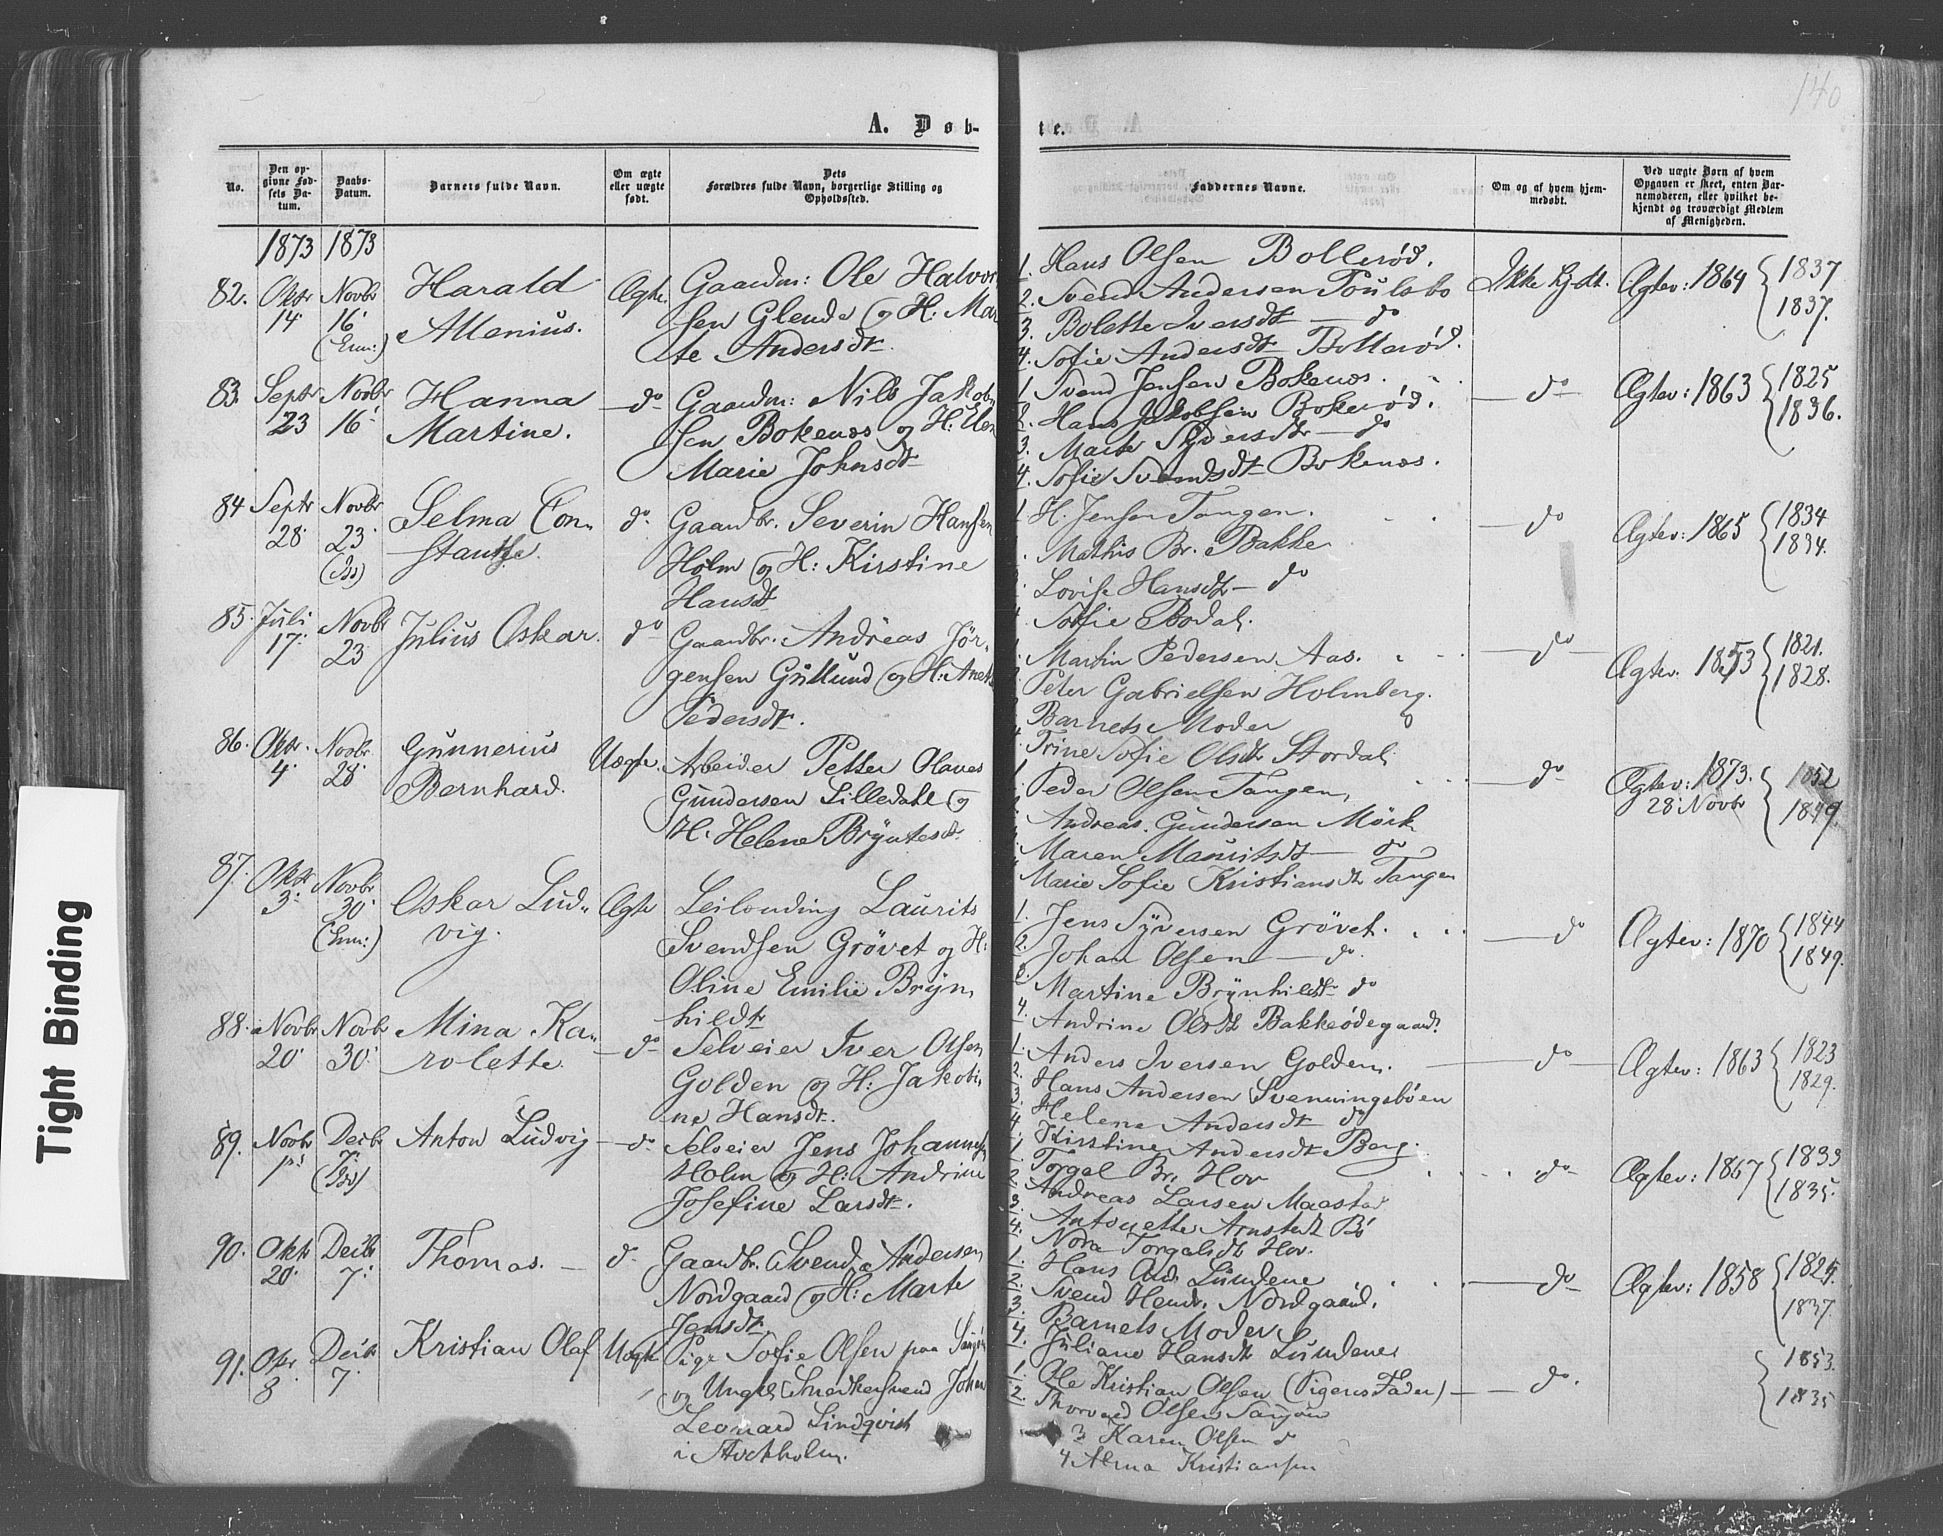 140
A. Døb-
te.
No.
Den op-
givne Fød-
sels Da-
tum.
Daabs-
Datum.
Barnets fulde Navn.
Om ægte
eller uægte
født.
Dets
Forældres fulde Navn, borgerlige Stilling og
Opholdssted.
Faddernes Navne.
Om og af hvem hjem-
medøbt.
Ved uægte Børn af hvem
Opgaven er skeet, enten Bar-
nemoderen, eller hvilket be-
kjendt og troværdigt Medlem
af Menigheden.
1873 1873
82. Oktr
14
Novbr
16
(Enn:)
Harald
Allenius.
Ægte.
Gaardm: Ole Halvor
sen Glende og H: Mar
te Andersdt.
1. Hans Olsen Bollerød.
2. Svend Andersen Poulsbo
3. Bolette Iversdt — do
4. Sofie Andersdt Bollerød.
Ikke hjdt.
Ægtev: 1864 { 1837
1837.
83. Septr
23
Novbr
16
Hanna
Martine.
do
Gaardm: Nils Jakob
sen Bokenæs og H:
Marie Johnsdt
1. Svend Jensen Bokenæs.
2. Hans Jakobsen Bokerød.
3. Marte Syversdt — do
4. Sofie Svendsdt Bokenæs.
do
Ægtev: 1863 { 1825
1836.
84 Septr
28
Novbr
23
Selma Con„
stantse.
do
Gaardbr. Severin Hansen
Holm og H: Kirstine
Hansdt
1 H. Jensen Tangen.
Mathis Br. Bakke
Lovise Hansdt — do
Sofie Bodal.
do
Ægtev: 1865 { 1834
1834.
85. Juli
17.
Novbr
23
Julius Oskar.
do
Gaardbr. Andreas Jör„
gensen Gullund og H: Anet
Pedersdt.
Martin Pedersen Aas.
Peter Gabrielsen Holmberg.
Barnets Moder
Trine Sofie Olsdt Stordal.
do
Ægtev. 1853 { 1821.
1828.
86. Oktr.
4.
Novbr.
28
Gunnerius
Bernhard.
Uægte.
Arbeider Petter Olaves
Gundersen Lilledahl og
H: Helene Bryntesdt
1. Peder Olsen Tangen,
Andreas Gundersen Mörk
Maren Mauritsdt — do
Marie Sofie Kristiansdt Tangen
do
Ægtev: 1873.
28 Novbr { 1852
1849.
87. Oktr
3.
Novbr
30
(Enn:)
Oskar Lud„
vig.
Ægte
Leilending Laurits
Svendsen Grövet og H:
Oline Emilie Bryn„
hildt
1. Jens Syversen Grövet.
2. Johan Olsen — do.
3. Martine Brynhildt do
4. Andrine Olsdt Bakkeödegaard.
do
Ægtev: 1870 { 1844
1849.
88. Novbr
20
Novbr
30
Mina Ka„
rolette
do
Selveier Iver Olsen
Golden og H: Jakobi
ne Hansdt.
1. Anders Iversen Golden.
2. Hans Andersen Svenningsböen
3. Helene Andersdt do
4. Kirstine Andersdt Berg.
do
Ægtev: 1863 { 1823
1829.
89. Novbr
1
Decbr
7.
Anton Ludvig
do
Selveier Jens Johannes
Holm og H: Andrine
Josefine Larsdt.
1. Torgal Br. Hov
2. Andreas Larsen Maastad
3. Antonette Arnstadt Bö
4. Nora Torgalsdt Hov.
do
Ægtev: 1867 { 1833
1835.
90. Oktr
20
Decbr
7.
Thomas.
do
Gaardbr. Svend Andersen
Nordgaard og H: Marte
Jensdt
1. Hans And. Lundene
2. Svend Hendr. Nordgaard.
3. Barnets Moder
4. Juliane Hansdt Lundene
do
Ægtev: 1858 { 1825.
1837.
91. Oktr
8
Decbr
7.
Kristian Olaf
Uægte
Pige Sofie Olsen paa
og Ungkl. Snedkersvend Johan
Leonard Lindqvist
i Stockholm.
1. Ole Kristian Olsen (Pigens Fader)
2. Thorvald Olsen
3 Karen Olsen do
4 Alma Kristiansen
do.
{ 1853.
1835
Tight Binding